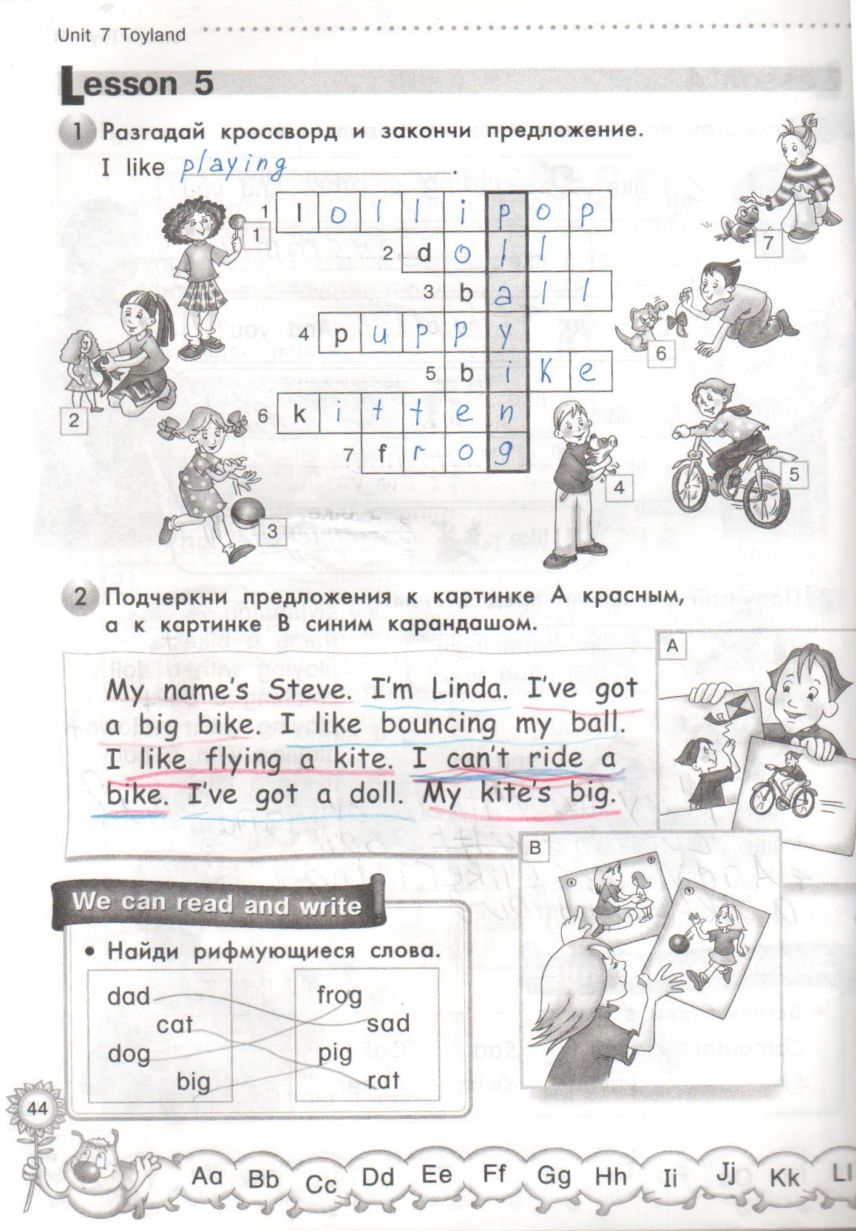 Unit 7 Toyland
Lesson 5
1 Разгадай кроссворд и закончи предложение.
I like playing.
1 lollipop
1
2 doll
7
3 ball
4 puppy
6
5 bike
2
6 kitten
5
7 frog
4
3
2 Подчеркни предложения к картинке А красным,
а к картинке В синим карандашом.
A
My name's Steve. I'm Linda. I've got
a big bike. I like bouncing my ball.
I like flying a kite. I can't ride a
bike. I've got a doll. My kite's big.
B
We can read and write
• Найди рифмующиеся слова.
dad frog
cat sad
dog pig
big rat
44
Aa Bb Cc Dd Ee Ff Gg Hh Ii Jj Kk Ll